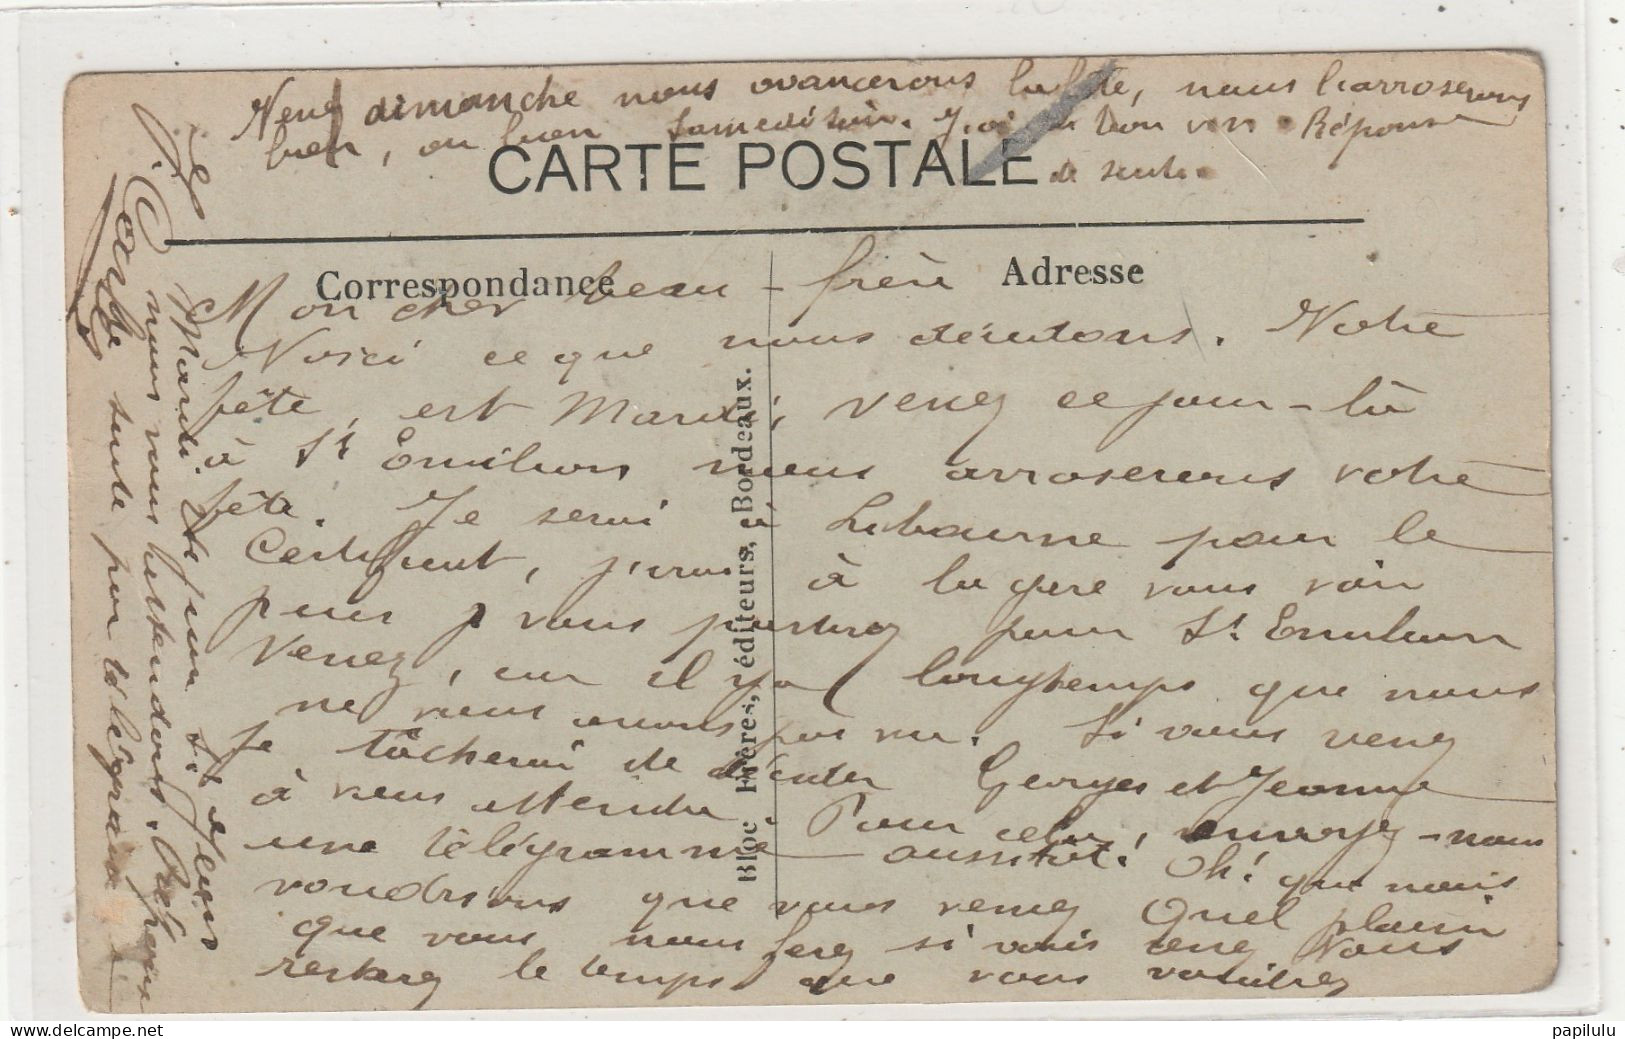 Venez dimanche nous avancerons la fête, nous l'arroserons
bien, ou bien Samedi soir. J'ai du bon vin. Réponse
de suite.
CARTE POSTALE
Correspondance
Adresse
Mon cher beau-frère
Voici ce que nous décidons. Notre
fête, est Mardi, venez ce jour-là
à St Emilion, nous arroserons votre
fête. Je serai à Libourne pour le
Certificat, j'irai à la gare vous voir
puis vous partirez pour St. Emilion
Venez, car il y a longtemps que nous
ne vous avons pas vu. Si vous venez
Je tâcherai de Georges et Jeanne
à vous attendre. Pour cela, envoyez-nous
une télégramme aussitôt! Oh! que nous
voudrions que vous venez Quel plaisir
que vous nous ferez si vous venez Vous
resterez le temps que vous voudrez
Bloc Frères, éditeurs, Bordeaux.
Mardi 24 juin si eleurs
nous vous attendons. Réponse
de suite par télégramme
papilulu